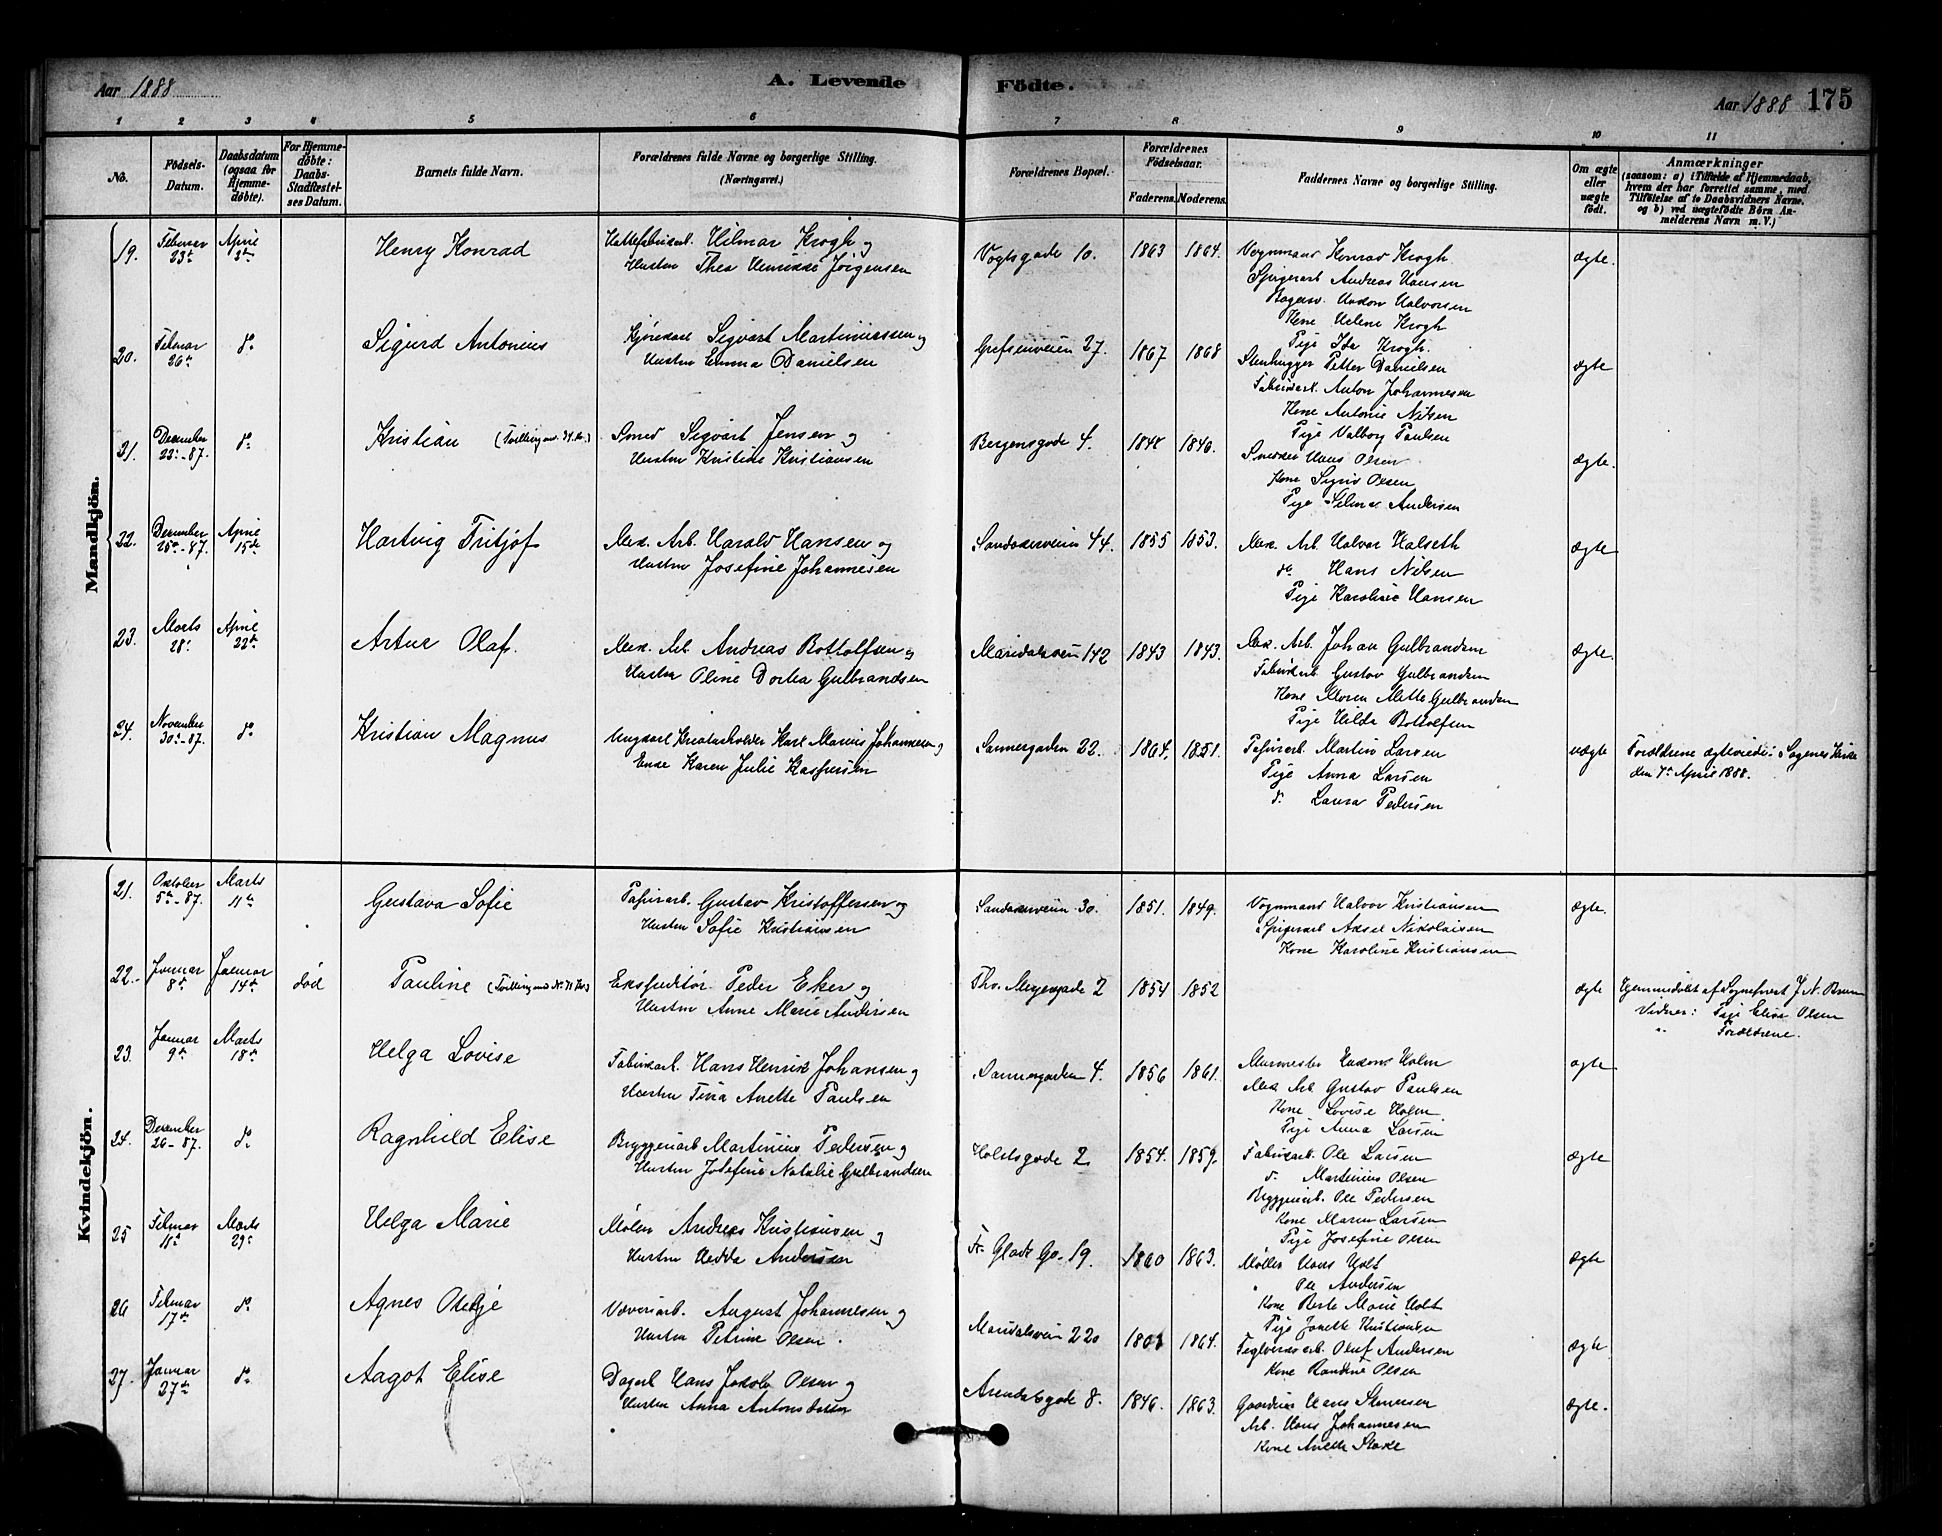 Aar 1888
A. Levende Födte.
Aar 1888 175
1 2 3 4 5 6 7 8 9 10 11
No.
Födsels-Datum.
Daabsdatum (ogsaa for Hjemmedöbte).
For Hjemmedöbte: Daabs-Stadfæstelses Datum.
Barnets fulde Navn.
Forældrenes fulde Navne og borgerlige Stilling. (Næringsvei.)
Forældrenes Bopæl.
Forældrenes Födselsaar.
Faderens. Moderens.
Faddernes Navne og borgerlige Stilling.
Om ægte eller uægte födt.
Anmærkninger
(saasom: a) i Tilfælde af Hjemmedaab,
hvem der har forrettet samme, med
Tilföielse af to Daabsvidners Navne.
og b) ved uægtefödte Börn An-
melderens Navn m. V.)
Mandkjön.
19. Februar 23de April 2den Henry Konrad Hilmar Krogh og Vogtsgade 10. 1863 1864. Vognmand Konrad Krogh ægte.
Hustru Thea Henrikke Jörgensen Spigerarb. Andreas Hansen
Halvorsen
Kone Helene Krogh
Pige Ida Krogh.
20. Februar 26de do Sigurd Antonius Kjöreкarl Sigvart Martiniussen og Grefsenveien 27. 1867 1868 Stenhugger Petter Danielsen ægte
Hustru Emma Danielsen Fabrikarb. Anton Johannesen
Kone Antonie Nilsen
Pige Valborg Paulsen
21. December 23de-87. do Kristian Smed Sigvart Jensen og Bergensgade 4. 1846. Snedker Hans Olsen ægte.
Hustru Kristine Kristiansen Kone Sigrid Olsen
Pige Andersen
22. December 25de-87. April 15de Hartvig Fritjof Mek. Arb. Harald Hansen og Sandakerveien 44. 1855 1853. Mek. Arb. Halvor Halseth ægte
Hustru Josefine Johannesen do Hans Nilsen
Pige Karoline Hansen
23. Marts 28de April 22de Artur Olaf. Mek. Arb. Andreas Bottolfsen og Maridalsveien 142 1843 1843. Mek. Arb. Johan Gulbrandsen ægte.
Hustru Oline Dortea Gulbrandsen Fabrikarb. Gustav Gulbrandsen
Kone Maren Mette Gulbrandsen
Pige Hilda Bottolfsen
24. November 30de-87. do Kristian Magnus Ungkarl Karl Marius Johannesen og Sannergaden 22. 1864. 1851. Papirarb. Martin Larsen uægte Forældrene ægteviede i Sagenes Kirke
Enke Karen Julie Kaspersen Pige Anna Larsen den 7de April 1888.
do Laura Pedersen
Kvindekjön.
21. Oktober 5te-87. Marts 11te Gustava Sofie Papirarb. Gustav Kristoffersen og Sandakerveien 30. 1851. 1849. Vognmand Halvor Kristiansen ægte.
Hustru Sofie Kristiansen Spigerarb. Aksel Nikolaisen
Kone Karoline Kristiansen
22. Januar 8de Januar 14de död Pauline Ekspeditör Peder Eker og Thv. Meyersgade 2 1854 1852 ægte Hjemmedöbt af Sogneprest J. N. Bruun
Hustru Anne Marie Andersen Vidner: Pige Elise Olsen
" Forældrene.
23. Januar 9de Marts 18de Helga Lovise Fabrikarb. Hans Henrik Johansen og Sannergaden 4. 1856 1861. Murmester Holm ægte
Hustru Tina Anette Paulsen Mek. Arb. Gustav Paulsen
Kone Lovise Holm
Pige Anna Larsen
24. December 26-87. do Ragnhild Elise Bryggeriarb Martinius Pedersen og Holstsgade 2. 1854. 1859. Fabrikarb. Ole Larsen ægte
Hustru Josefine Natalie Gulbrandsen do Martinius Olsen
Bryggeriarb. Ole Pedersen
Kone Maren Larsen
Pige Josefine Olsen
25 Februar 11te Marts 29de Helga Marie Möller Andreas Kristiansen og Fr. Glads Ga. 19. 1860 1863. Möller Hans Holt ægte
Hustru Hedda Andersen " Ole Andersen
Kone Berte Marie Holt
Pige Janette Kristiansen
26 Februar 17de do Agnes Væveriarb. August Johannesen og Maridalsveien 220 1864. Teglverksarb. Oluf Andersen ægte
Hustru Petrine Olsen. Kone Randine Olsen
27. Januar 27de do Aagot Elise Dagarb Hans Jakob Olsen og Arendalsgade 8. 1846. 1863. Hans Stenersen ægte.
Hustru Anna Antonsdatter Arb. Hans Johannesen
Kone Anette